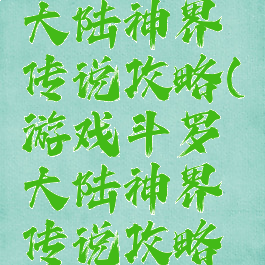 大陆神界
传说攻略(
游戏斗罗
大陆神界
传说攻略